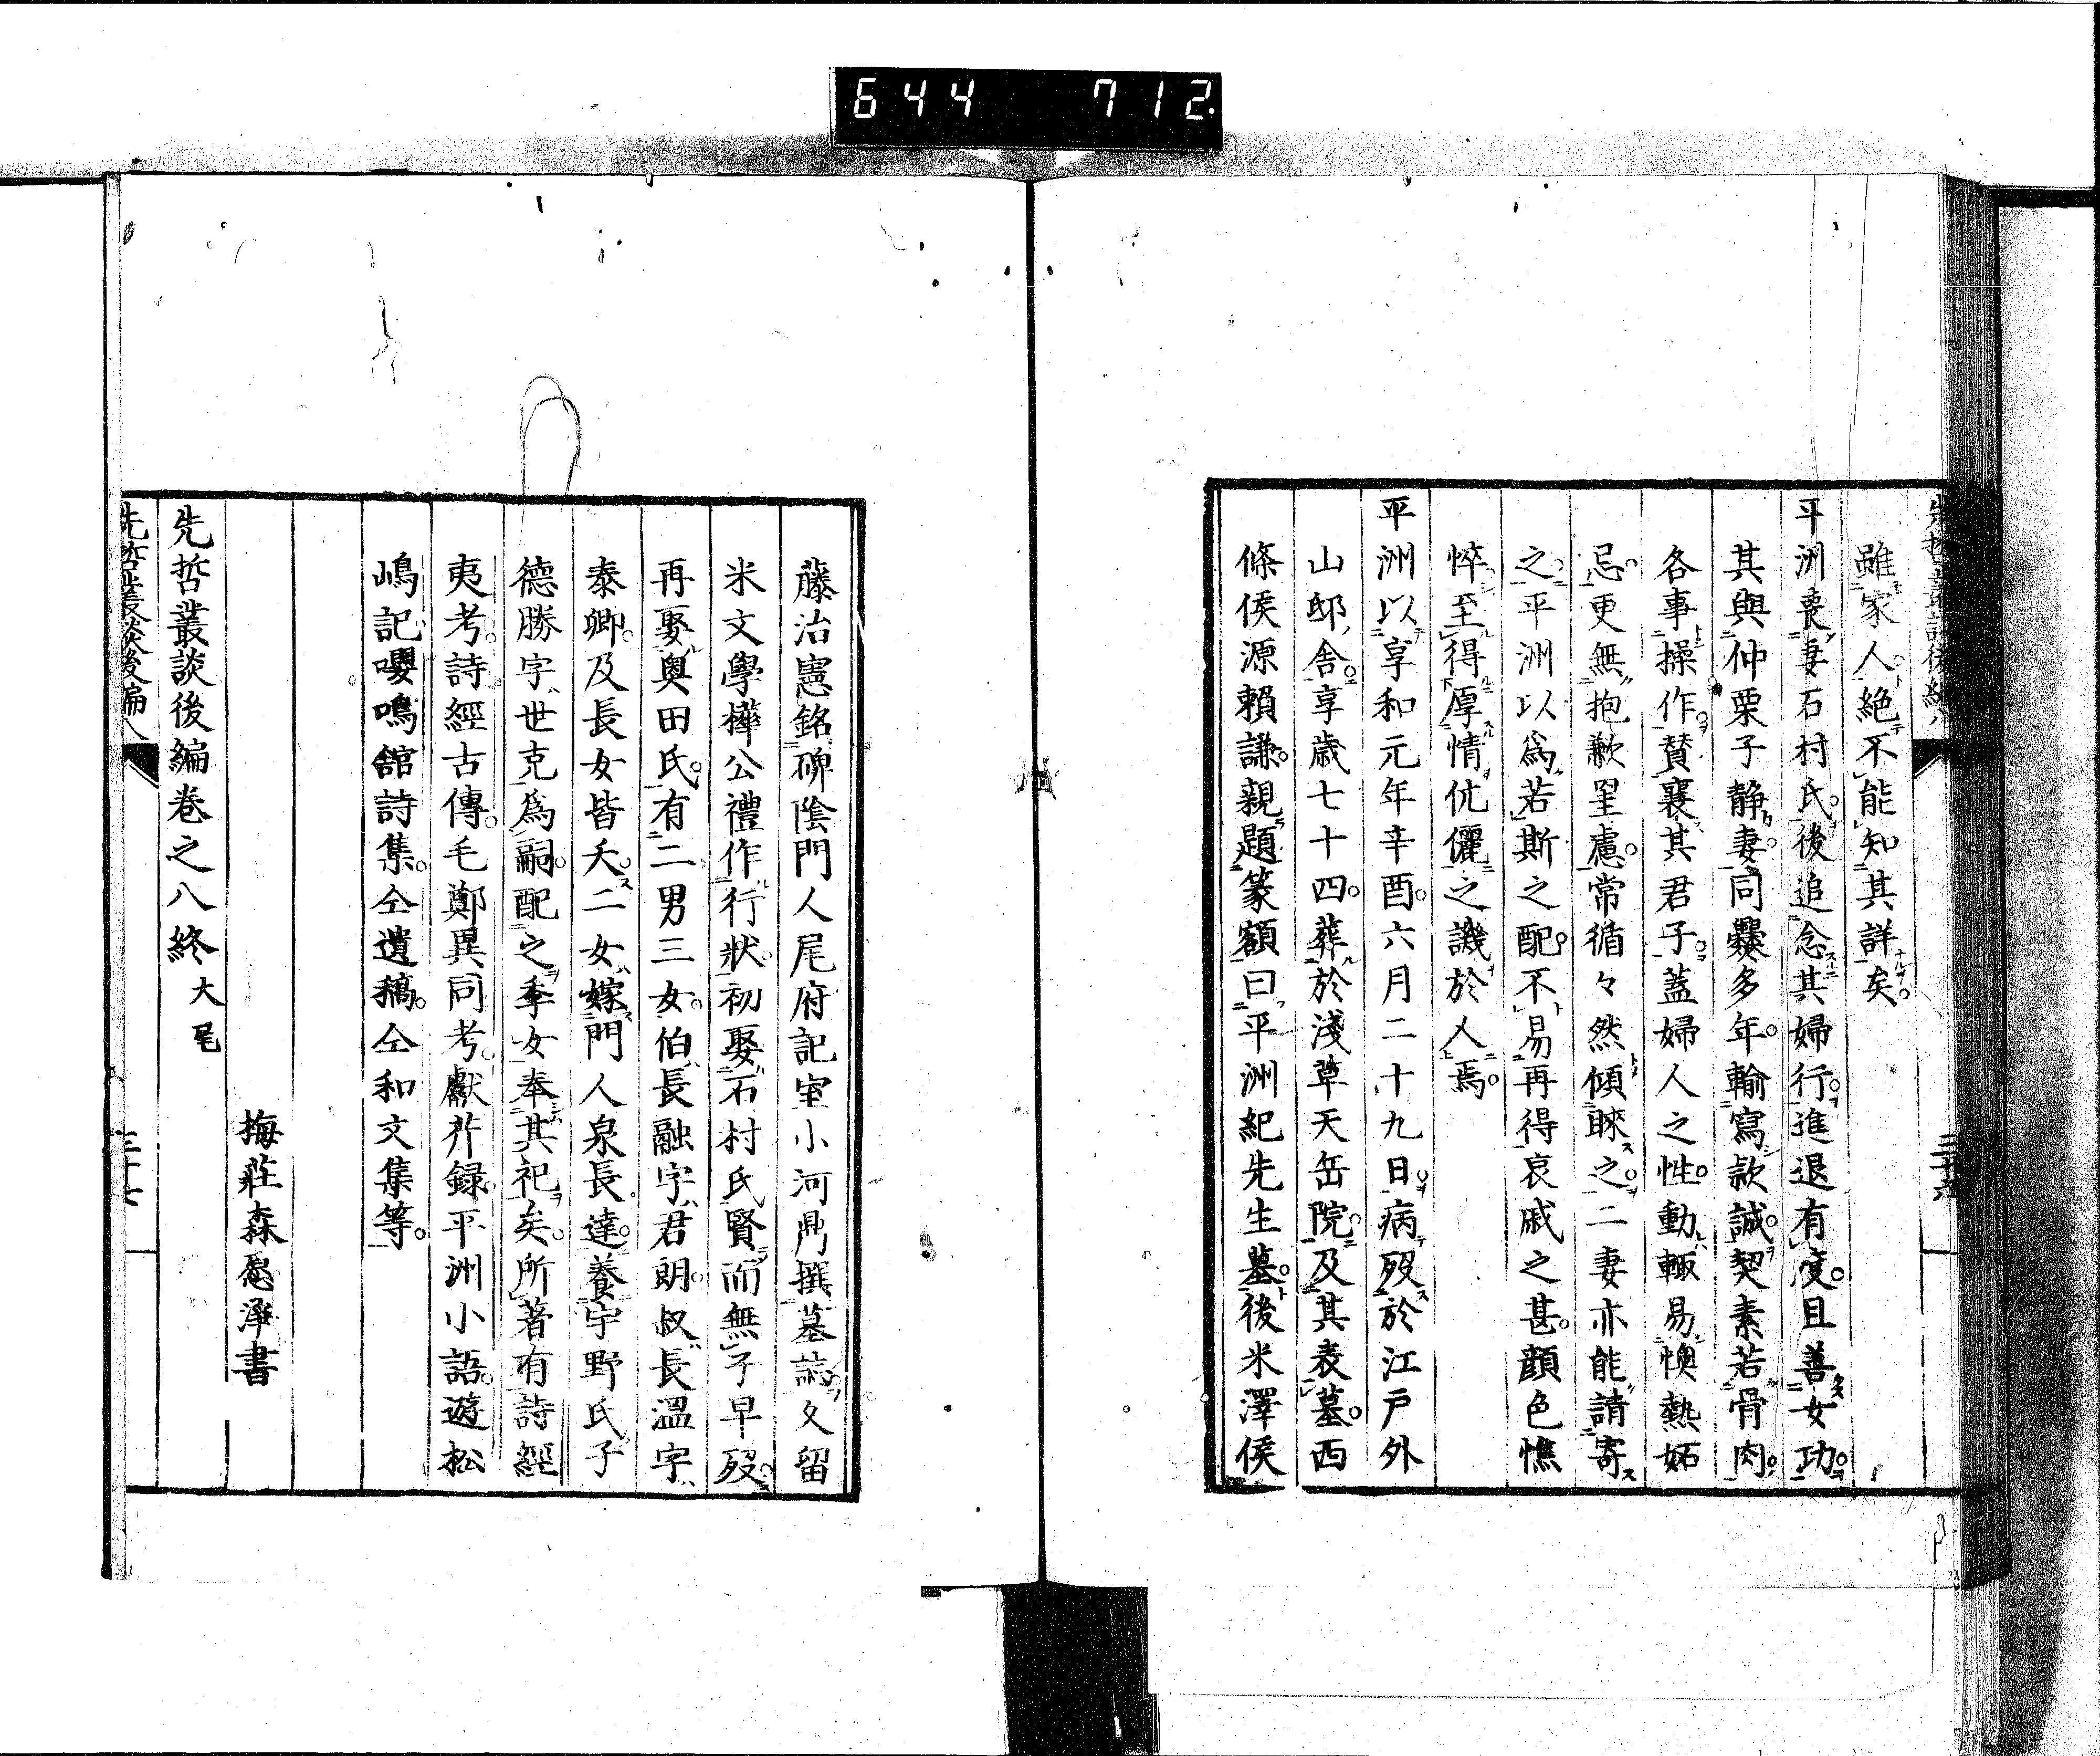 644 712
雖家人絶不能知其詳矣
平洲喪妻石村氏後追念其婦行進退有度且善女功
其與仲栗子静妻同爨多年輸寫款誠契素若骨肉
各事操作賛襄其君子蓋婦人之性動輙易懊熱妬
忌更無抱歉罣慮常循々然傾睞之二妻亦能請寄
之平洲以為若斯之配不易再得哀戚之甚顔色憔
悴至得厚情伉儷之譏於人焉
平洲以享和元年辛酉六月二十九日病歿於江戸外
山邸舎享歳七十四葬於淺草天岳院及其表墓西
條侯源頼謙親題篆額曰平洲紀先生墓後米澤侯
藤治憲銘碑陰門人尾府記室小河鼎撰墓誌久留
米文學樺公禮作行狀初娶石村氏賢而無子早歿
再娶奥田氏有二男三女伯長融字君朗叔長温字
泰卿及長女皆夭二女嫁門人泉長達養宇野氏子
德勝字世克為嗣配之季女奉其祀矣所著有詩經
夷考詩經古傳毛鄭異同考獻芹録平洲小語遊松
嶋記嚶鳴舘詩集仝遺稿仝和文集等
梅莊森愿淨書
先哲叢談後編巻之八終 大尾
先哲叢談後編八 三十七